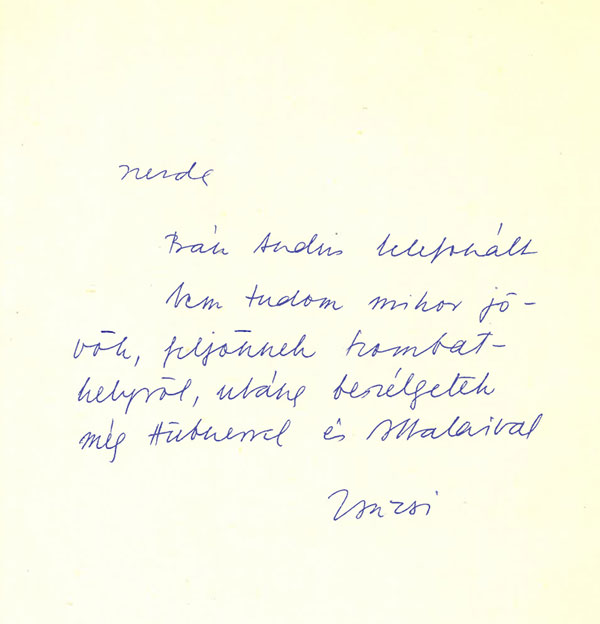 szerda
Bán András telefonált
Nem tudom mikor jö-
vök, feljönnek Szombat-
helyről, utána beszélgetek
még Hübnerrel és Attalaival
Zsuzsi